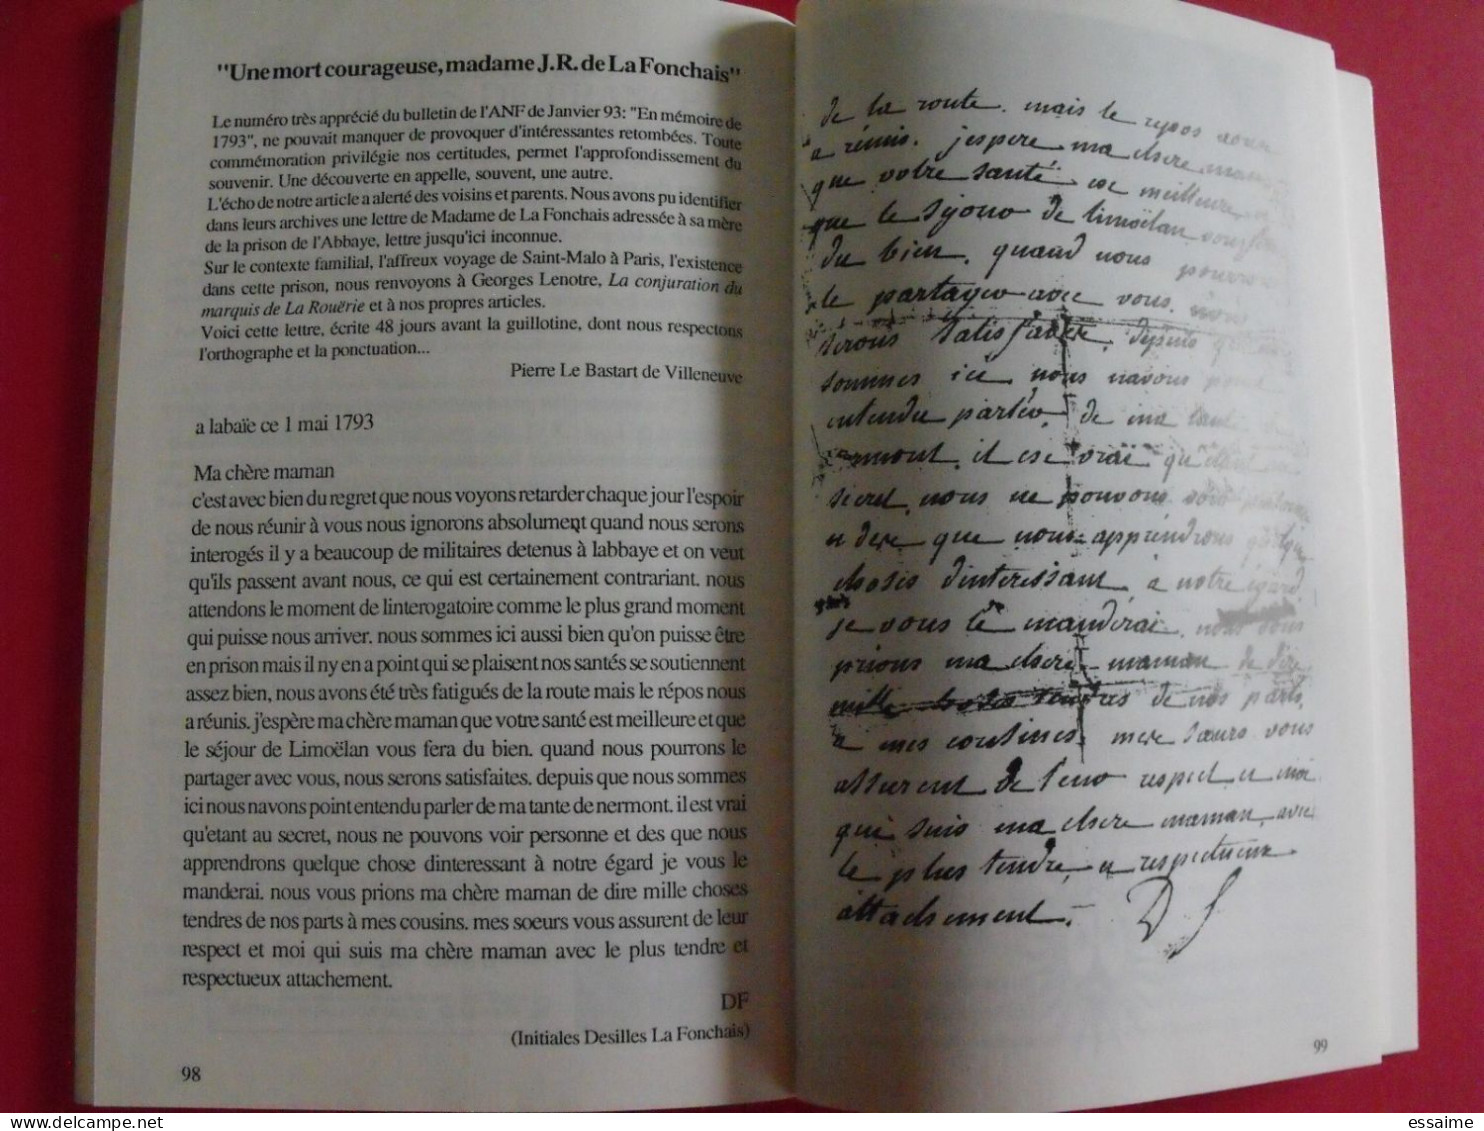 "Une mort courageuse, madame J.R. de La Fonchais"
Le numéro très apprécié du bulletin de l'ANF de Janvier 93: "En mémoire de
1793", ne pouvait manquer de provoquer d'intéressantes retombées. Toute
commémoration privilégie nos certitudes, permet l'approfondissement du
souvenir. Une découverte en appelle, souvent, une autre.
L'écho de notre article a alerté des voisins et parents. Nous avons pu identifier
dans leurs archives une lettre de Madame de La Fonchais adressée à sa mère
de la prison de l'Abbaye, lettre jusqu'ici inconnue.
Sur le contexte familial, l'affreux voyage de Saint-Malo à Paris, l'existence
dans cette prison, nous renvoyons à Georges Lenotre, La conjuration du
marquis de La Rouërie et à nos propres articles.
Voici cette lettre, écrite 48 jours avant la guillotine, dont nous respectons
l'orthographe et la ponctuation...
Pierre Le Bastart de Villeneuve
a labaïe ce 1 mai 1793
Ma chère maman
c'est avec bien du regret que nous voyons retarder chaque jour l'espoir
de nous réunir à vous nous ignorons absolument quand nous serons
interogés il y a beaucoup de militaires detenus à labbaye et on veut
qu'ils passent avant nous, ce qui est certainement contrariant. nous
attendons le moment de linterogatoire comme le plus grand moment
qui puisse nous arriver. nous sommes ici aussi bien qu'on puisse être
en prison mais il ny en a point qui se plaisent nos santés se soutiennent
assez bien, nous avons été très fatigués de la route mais le répos nous
a réunis. j'espère ma chère maman que votre santé est meilleure et que
le séjour de Limoëlan vous fera du bien. quand nous pourrons le
partager avec vous, nous serons satisfaites. depuis que nous sommes
ici nous navons point entendu parler de ma tante de nermont. il est vrai
qu'etant au secret, nous ne pouvons voir personne et des que nous
apprendrons quelque chose dinteressant à notre égard je vous le
manderai. nous vous prions ma chère maman de dire mille choses
tendres de nos parts à mes cousins. mes soeurs vous assurent de leur
respect et moi qui suis ma chère maman avec le plus tendre et
respectueux attachement.
DF
(Initiales Desilles La Fonchais)
98
de la route. mais le repos
a réunis. jespere ma chere
que votre santé est meilleure
que le séjour de limoëlan
du bien. quand nous
le partager avec vous.
serons satisfaites. depuis
sommes ici nous navons
entendu parler de ma tante
il est vrai
secret, nous ne pouvons voir
que nous apprendrons
choses d'interessant à notre égard
je vous le manderai. nous vous
prions ma chere maman de dire
mille choses tendres de nos parts
a mes cousines. mes sœurs vous
assurent de leur respect et moi
qui suis ma chere maman avec
le plus tendre et respectueux
attachement.
99
essaime
DELCAMPE.NET